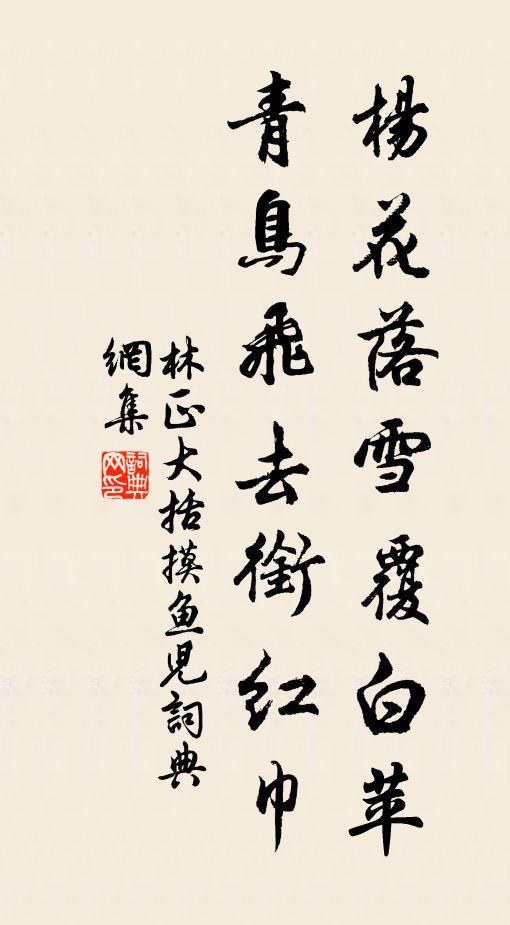 楊花落雪覆白苹
青鳥飛去銜紅巾
林正大括摸魚兒詞典
網集
詞典网印